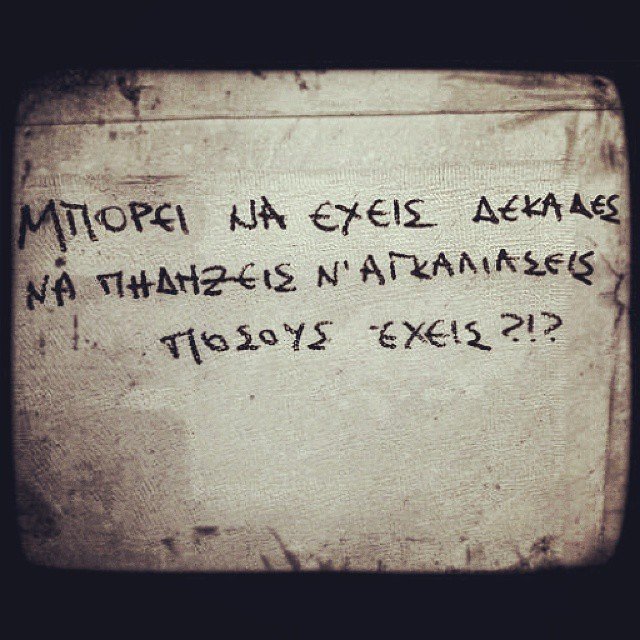 ΜΠΟΡΕΙ ΝΑ ΕΧΕΙΣ ΔΕΚΑΔΕΣ
ΝΑ ΠΗΔΗΞΕΙΣ Ν' ΑΓΚΑΛΙΑΣΕΙΣ
ΠΟΣΟΥΣ ΕΧΕΙΣ?!?